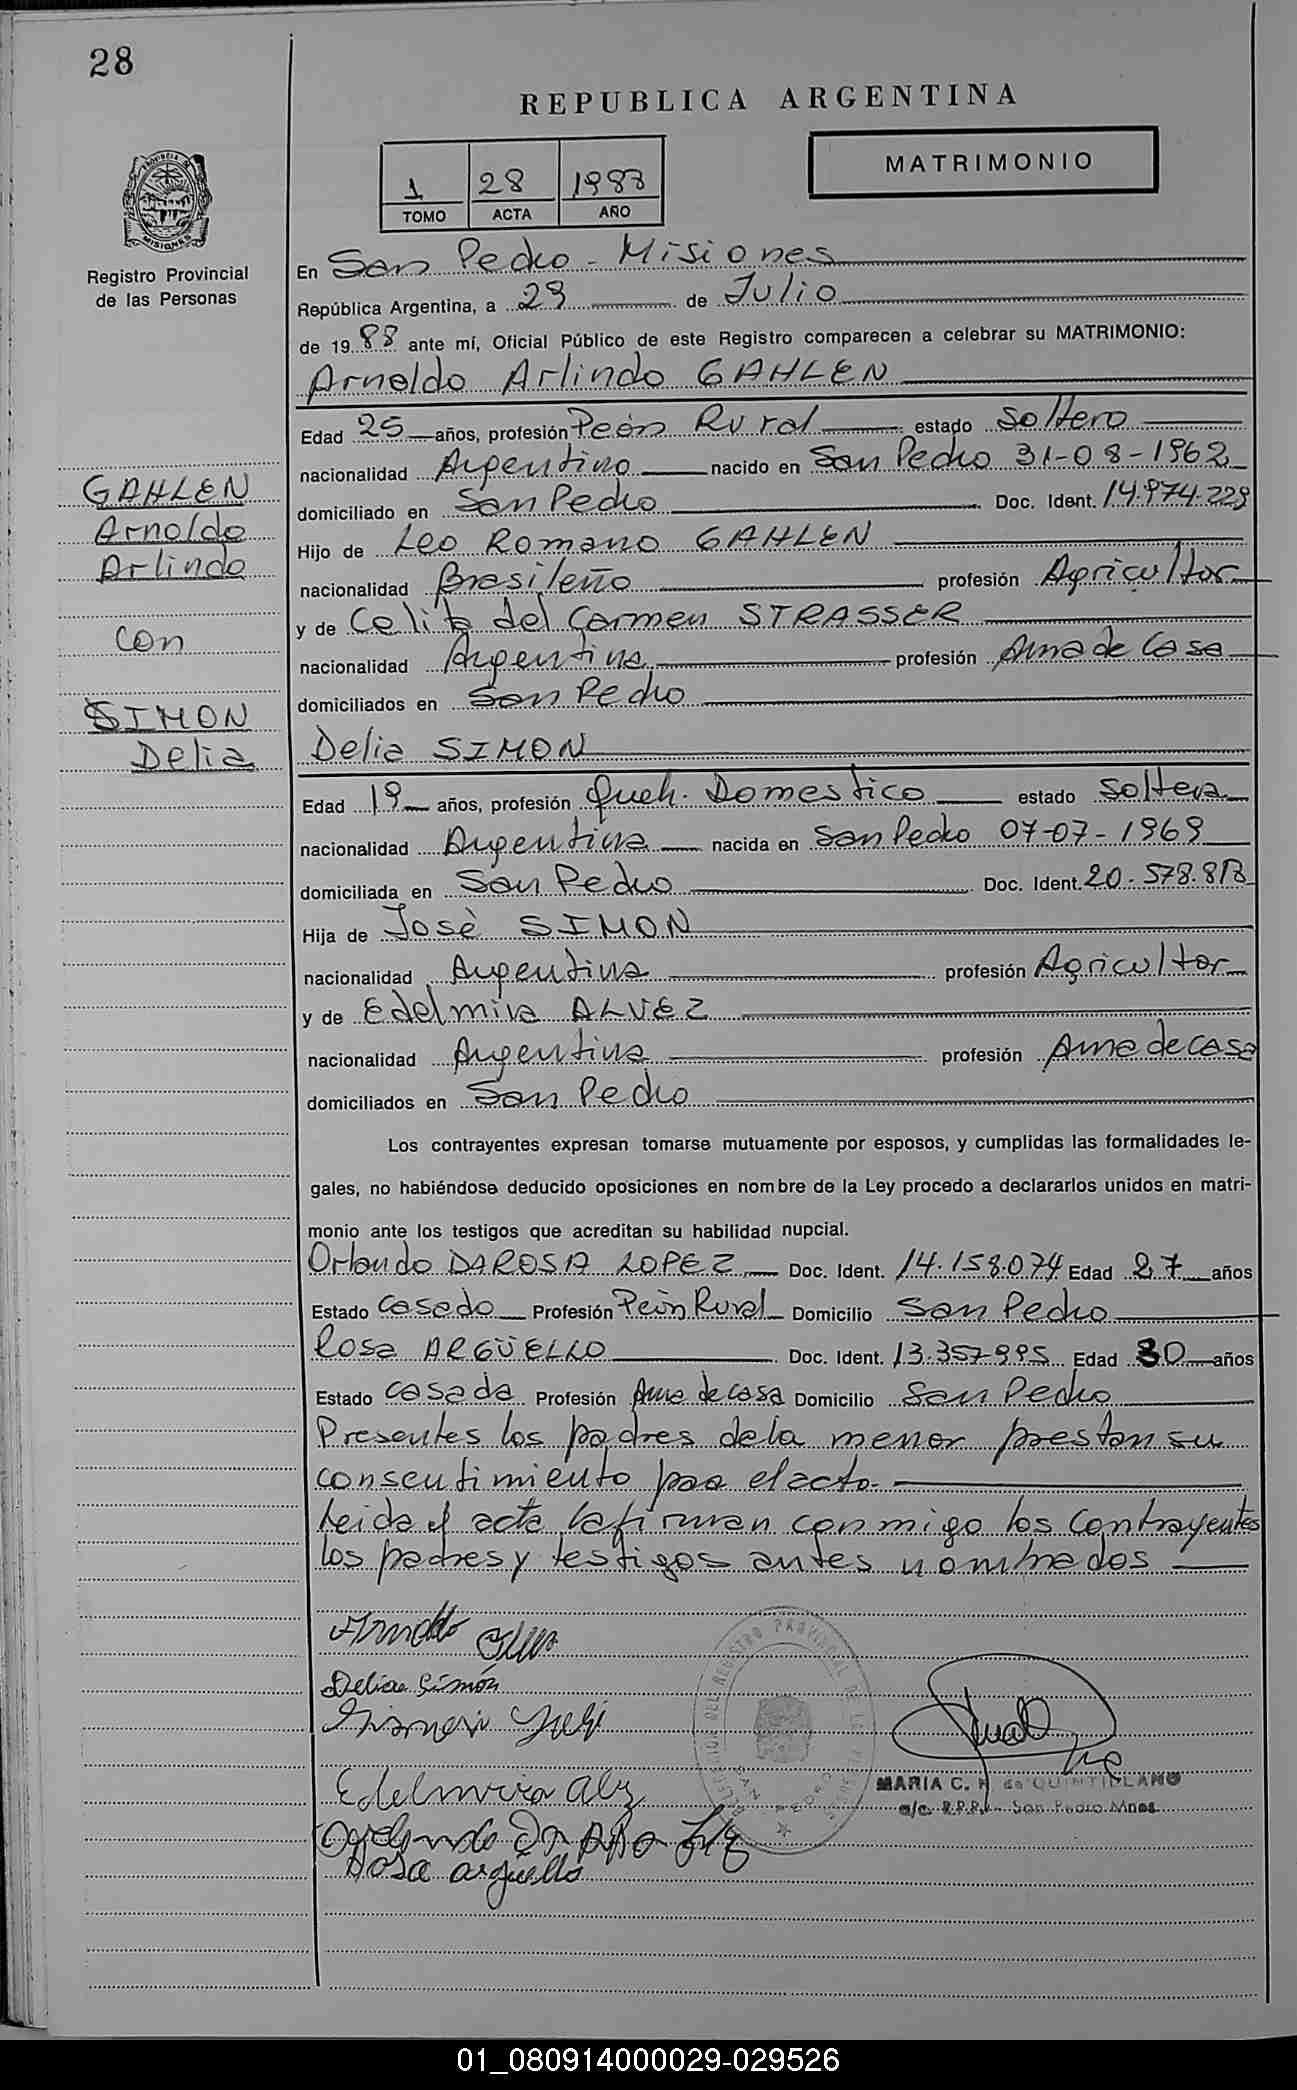 28
REPUBLICA ARGENTINA
MATRIMONIO
1 28 1988
TOMO ACTA AÑO
PROVINCIA DE MISIONES
Registro Provincial
de las Personas
En San Pedro - Misiones
República Argentina, a 29 de Julio
de 1988 ante mí, Oficial Público de este Registro comparecen a celebrar su MATRIMONIO:
Arnoldo Arlindo GAHLEN
Edad 25 años, profesión Peón Rural estado Soltero
nacionalidad Argentino nacido en San Pedro 31-08-1962
domiciliado en San Pedro Doc. Ident. 14.974.229
Hijo de Leo Romano GAHLEN
nacionalidad Brasileño profesión Agricultor
y de Celita del Carmen STRASSER
nacionalidad Argentina profesión Ama de Casa
domiciliados en San Pedro
GAHLEN
Arnoldo
Arlindo
con
SIMON
Delia
Delia SIMON
Edad 19 años, profesión Queh. Domestico estado Soltera
nacionalidad Argentina nacida en San Pedro 07-07-1969
domiciliada en San Pedro Doc. Ident. 20.578.818
Hija de José SIMON
nacionalidad Argentina profesión Agricultor
y de Edelmira ALVEZ
nacionalidad Argentina profesión Ama de casa
domiciliados en San Pedro
Los contrayentes expresan tomarse mutuamente por esposos, y cumplidas las formalidades le-
gales, no habiéndose deducido oposiciones en nombre de la Ley procedo a declararlos unidos en matri-
monio ante los testigos que acreditan su habilidad nupcial.
Orlando DAROSA LOPEZ Doc. Ident. 14.158.074 Edad 27 años
Estado Casado Profesión Peón Rural Domicilio San Pedro
Rosa ARGÜELLO Doc. Ident. 13.357.995 Edad 30 años
Estado Casada Profesión Ama de casa Domicilio San Pedro
Presentes los padres de la menor prestan su
consentimiento para el acto.
Leida el acta la firman conmigo los Contrayentes
los padres y testigos antes nombrados
Arnoldo
Delia Simón
Edelmira
Rosa arguello
REGISTRO PROVINCIAL DE LAS PERSONAS
SAN PEDRO
MARIA C. R. de QUINTILLANO
a/c. R.P.P. - San Pedro Mnes.
01_080914000029-029526